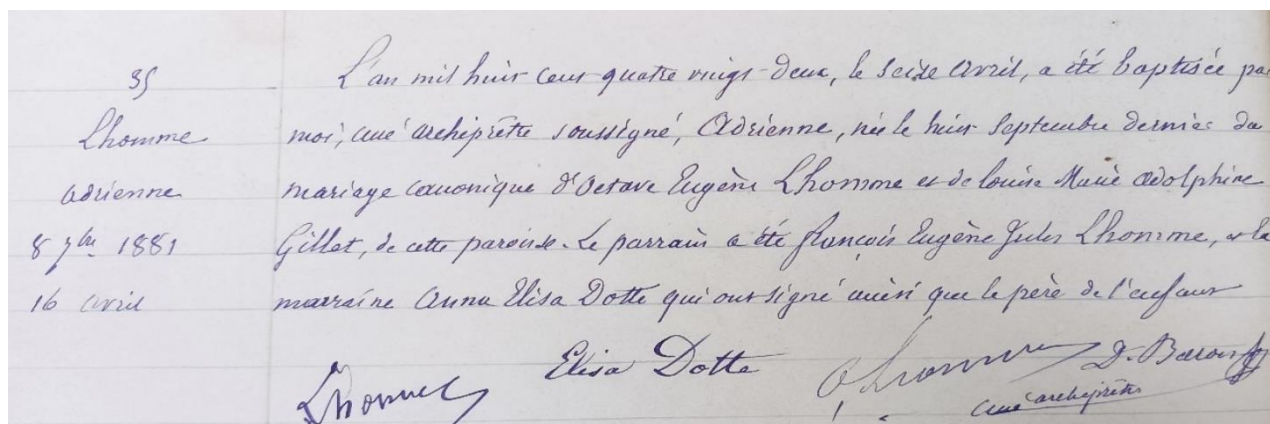 35
Lhomme
Adrienne
8 7bre 1881
16 avril
L'an mil huit cent quatre vingt-deux, le seize avril, a été baptisée par
moi, curé archiprêtre soussigné, Adrienne, née le huit Septembre dernier du
mariage canonique d'Octave Eugène Lhomme et de louise Marie Adolphine
Gillet, de cette paroisse. Le parrain a été françois Eugène Jules Lhomme, et la
marraine Anna Elisa Dotte qui ont signé ainsi que le père de l'enfant
Elisa Dotte
Lhomme
O. Lhomme
D. 
curé archiprêtre